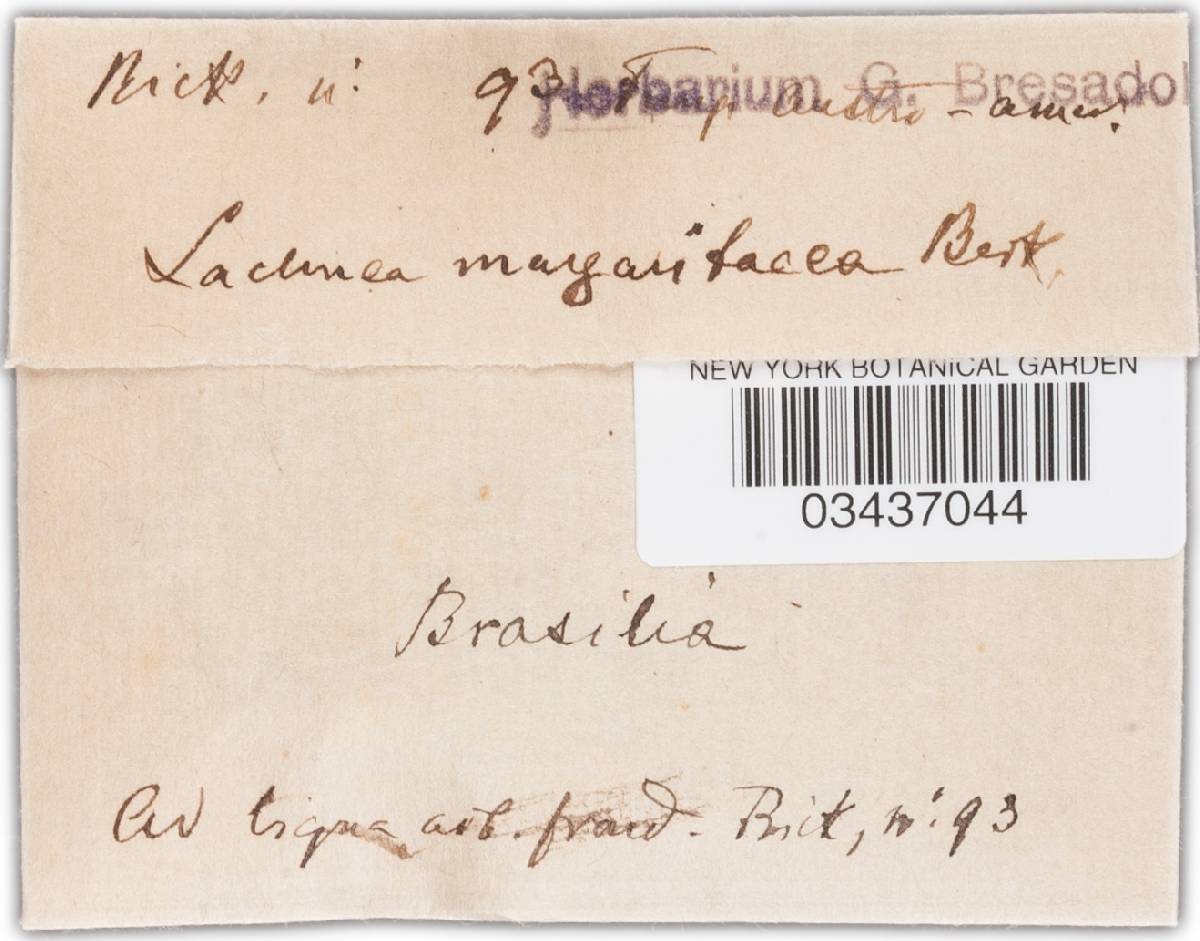 Rick, n: 93 Fung. austro-amer.
Herbarium G. Bresadol
Lachnea margaritacea Berk.
NEW YORK BOTANICAL GARDEN
03437044
Brasilia
Ad ligna arb. frond. Rick, n: 93